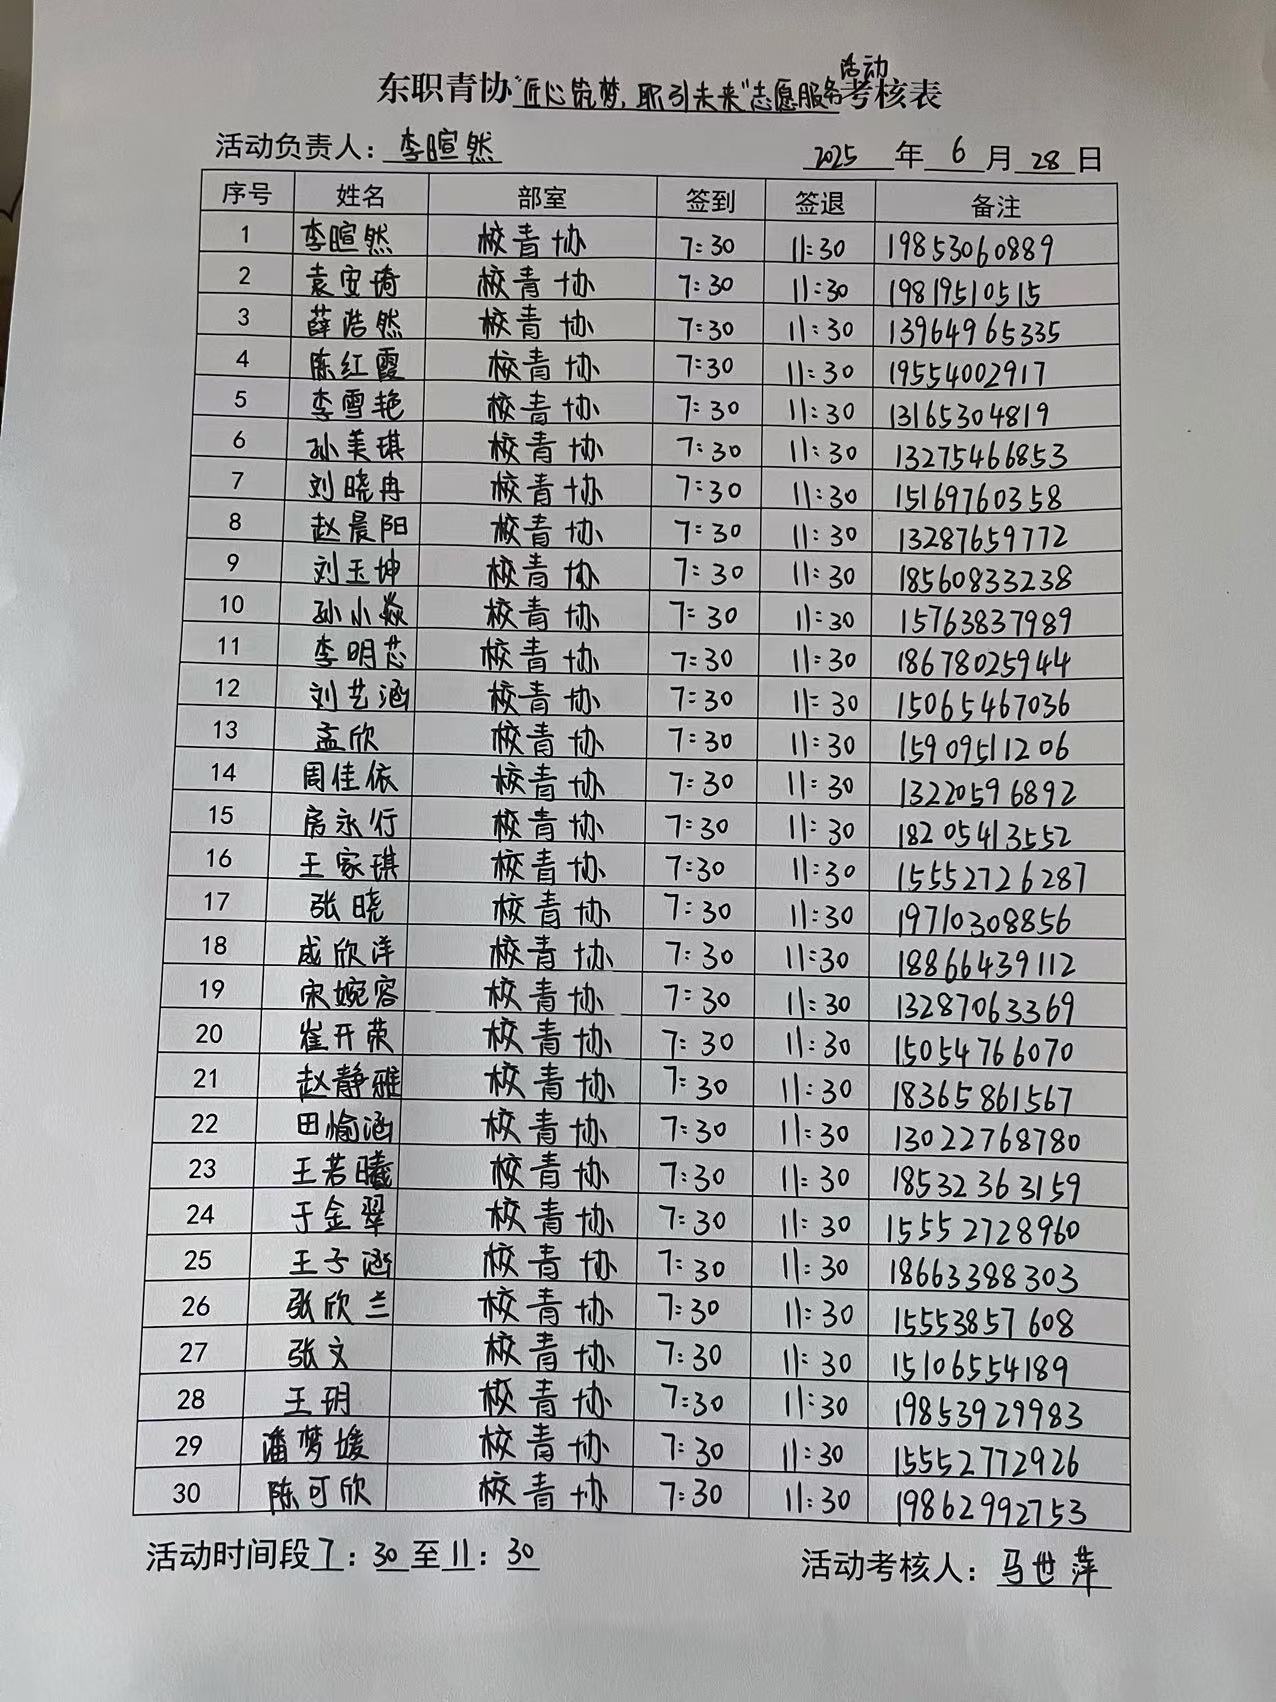 东职青协“匠心筑梦，职引未来”志愿服务活动考核表
活动负责人：李暄然 2025年6月28日
序号 姓名 部室 签到 签退 备注
1 李暄然 校青协 7:30 11:30 19853060889
2 袁安琦 校青协 7:30 11:30 19819510515
3 薛浩然 校青协 7:30 11:30 13964965335
4 陈红霞 校青协 7:30 11:30 19554002917
5 李雪艳 校青协 7:30 11:30 13165304819
6 孙美琪 校青协 7:30 11:30 13275466853
7 刘晓冉 校青协 7:30 11:30 15169760358
8 赵晨阳 校青协 7:30 11:30 13287659772
9 刘玉坤 校青协 7:30 11:30 18560833238
10 孙小焱 校青协 7:30 11:30 15763837989
11 李明芯 校青协 7:30 11:30 18678025944
12 刘艺涵 校青协 7:30 11:30 15065467036
13 孟欣 校青协 7:30 11:30 15909511206
14 周佳依 校青协 7:30 11:30 13220596892
15 房永行 校青协 7:30 11:30 18205413552
16 王家琪 校青协 7:30 11:30 15552726287
17 张晓 校青协 7:30 11:30 19710308856
18 成欣洋 校青协 7:30 11:30 18866439112
19 宋婉容 校青协 7:30 11:30 13287063369
20 崔开荣 校青协 7:30 11:30 15054766070
21 赵静雅 校青协 7:30 11:30 18365861567
22 田愉涵 校青协 7:30 11:30 13022768780
23 王若曦 校青协 7:30 11:30 18532363159
24 于金翠 校青协 7:30 11:30 15552728960
25 王子涵 校青协 7:30 11:30 18663388303
26 张欣兰 校青协 7:30 11:30 15553857608
27 张文 校青协 7:30 11:30 15106554189
28 王玥 校青协 7:30 11:30 19853929983
29 潘梦媛 校青协 7:30 11:30 15552772926
30 陈可欣 校青协 7:30 11:30 19862992753
活动时间段7：30至11：30 活动考核人：马世萍